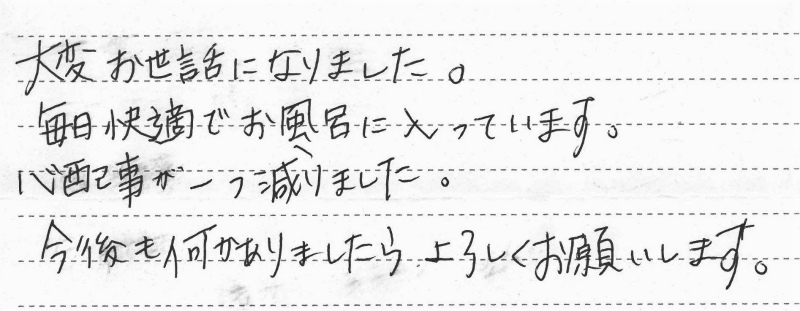 大変お世話になりました。
毎日快適でお風呂に入っています。
心配事が一つ減りました。
今後も何かありましたらよろしくお願いします。